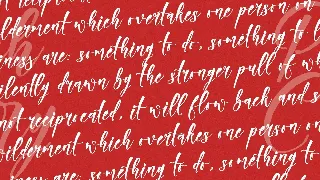 not reciproca
wilderment which overtakes one person on
iness are: something to do, something to l
ilently drawn by the stronger pull of wh
not reciprocated, it will flow back and s
wilderment which overtakes one person on
iness are: something to do, something to